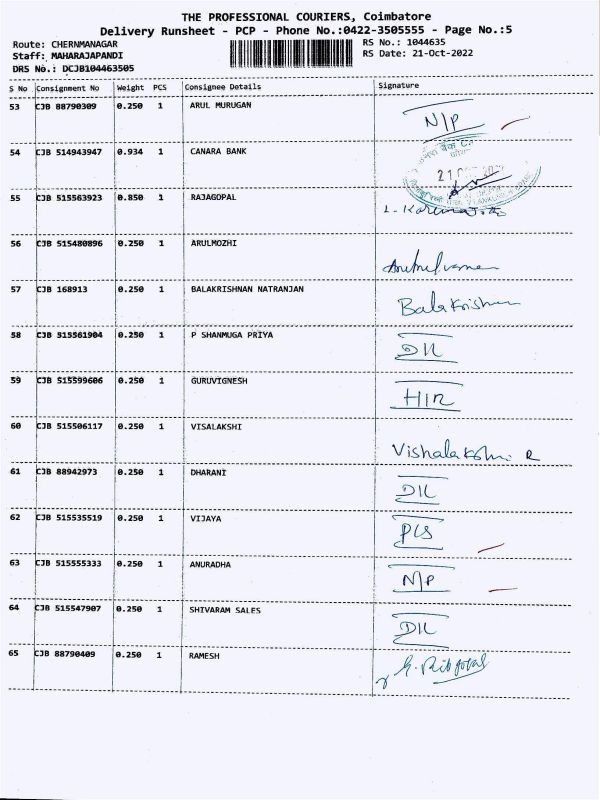 THE PROFESSIONAL COURIERS, Coimbatore
Delivery Runsheet - PCP - Phone No.:0422-3505555 - Page No.:5
Route: CHERNMANAGAR
Staff: MAHARAJAPANDI
DRS No.: DCJB104463505
RS No.: 1044635
RS Date: 21-Oct-2022
S No Consignment No Weight PCS Consignee Details Signature
53 CJB 88790309 0.250 1 ARUL MURUGAN N/P
54 CJB 514943947 0.934 1 CANARA BANK
55 CJB 515563923 0.850 1 RAJAGOPAL
56 CJB 515480896 0.250 1 ARULMOZHI
57 CJB 168913 0.250 1 BALAKRISHNAN NATRANJAN Balakrishnan
58 CJB 515561904 0.250 1 P SHANMUGA PRIYA D/L
59 CJB 515599606 0.250 1 GURUVIGNESH
60 CJB 515506117 0.250 1 VISALAKSHI Vishalakshi. R
61 CJB 88942973 0.250 1 DHARANI D/L
62 CJB 515535519 0.250 1 VIJAYA
63 CJB 515555333 0.250 1 ANURADHA N/P
64 CJB 515547907 0.250 1 SHIVARAM SALES D/L
65 CJB 88790409 0.250 1 RAMESH